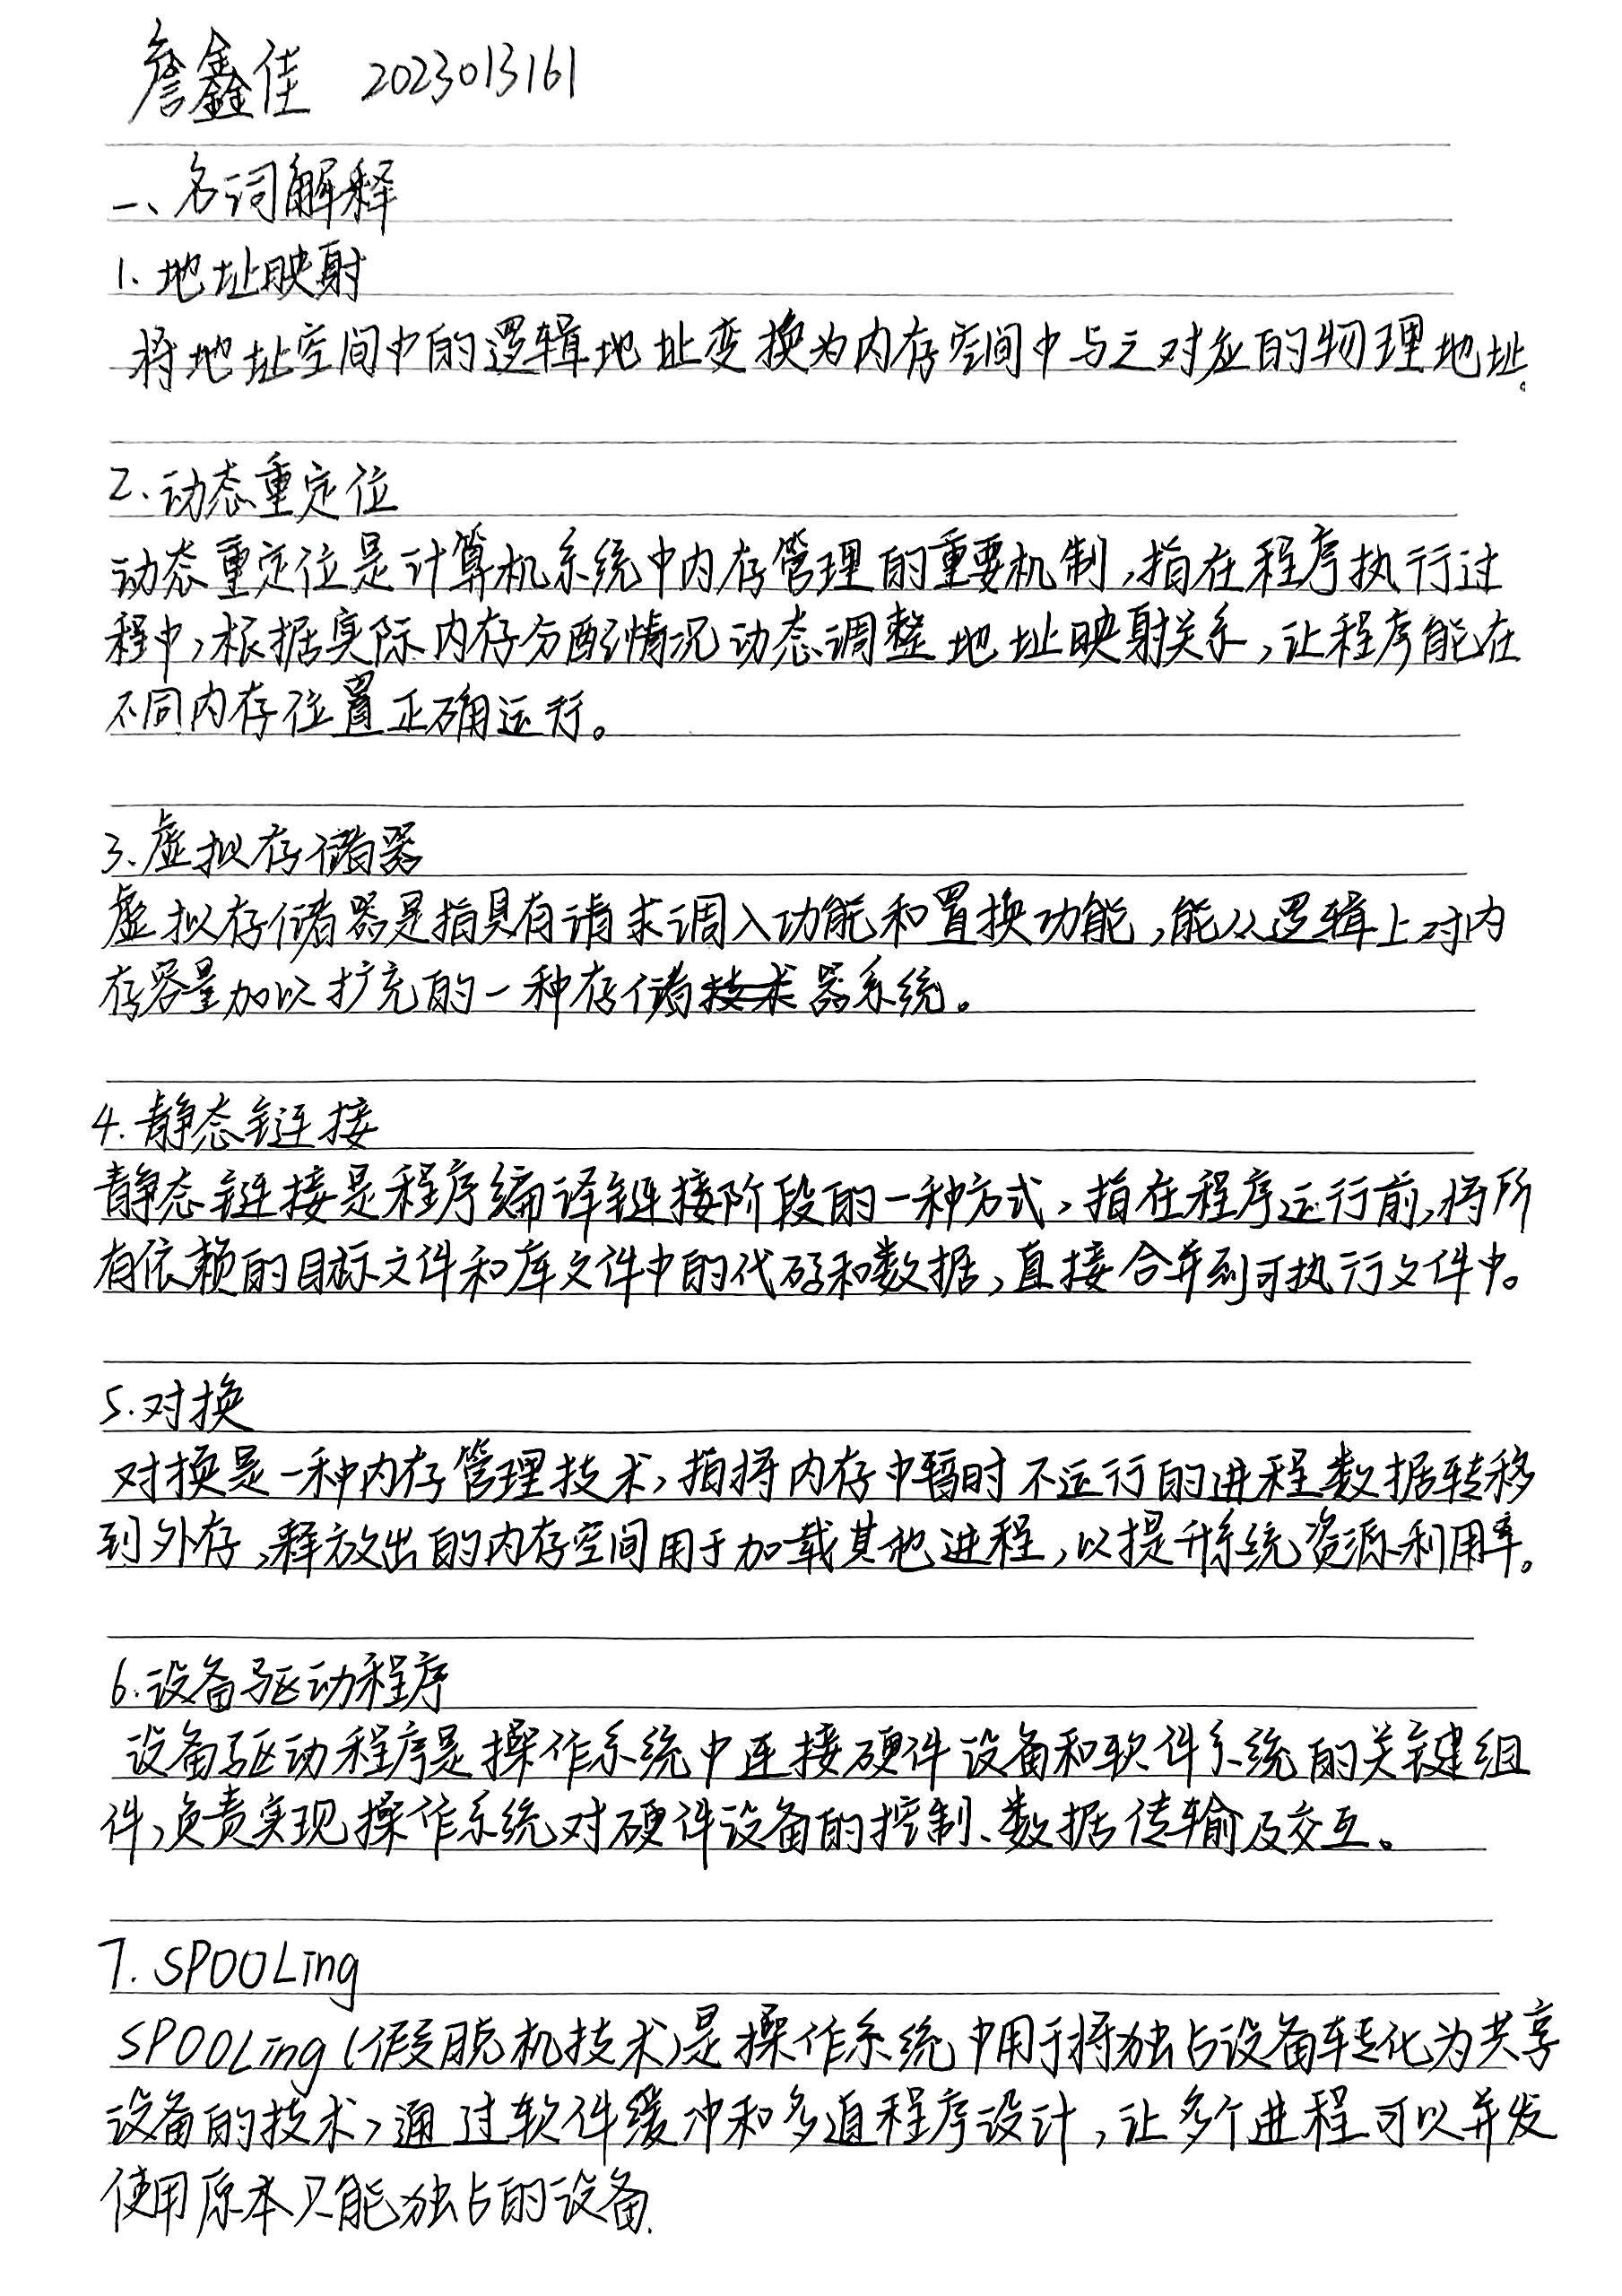 詹鑫佳 2023013161
一、名词解释
1. 地址映射
将地址空间中的逻辑地址变换为内存空间中与之对应的物理地址。
2. 动态重定位
动态重定位是计算机系统中内存管理的重要机制,指在程序执行过
程中,根据实际内存分配情况动态调整地址映射关系,让程序能在
不同内存位置正确运行。
3. 虚拟存储器
虚拟存储器是指具有请求调入功能和置换功能,能从逻辑上对内
存容量加以扩充的一种存储技术器系统。
4. 静态链接
静态链接是程序编译链接阶段的一种方式,指在程序运行前,将所
有依赖的目标文件和库文件中的代码和数据,直接合并到可执行文件中。
5. 对换
对换是一种内存管理技术,指将内存中暂时不运行的进程数据转移
到外存,释放出的内存空间用于加载其他进程,以提升系统资源利用率。
6. 设备驱动程序
设备驱动程序是操作系统中连接硬件设备和软件系统的关键组
件,负责实现操作系统对硬件设备的控制、数据传输及交互。
7. SPOOLing
SPOOLing(假脱机技术)是操作系统中用于将独占设备转化为共享
设备的技术,通过软件缓冲和多道程序设计,让多个进程可以并发
使用原本只能独占的设备.